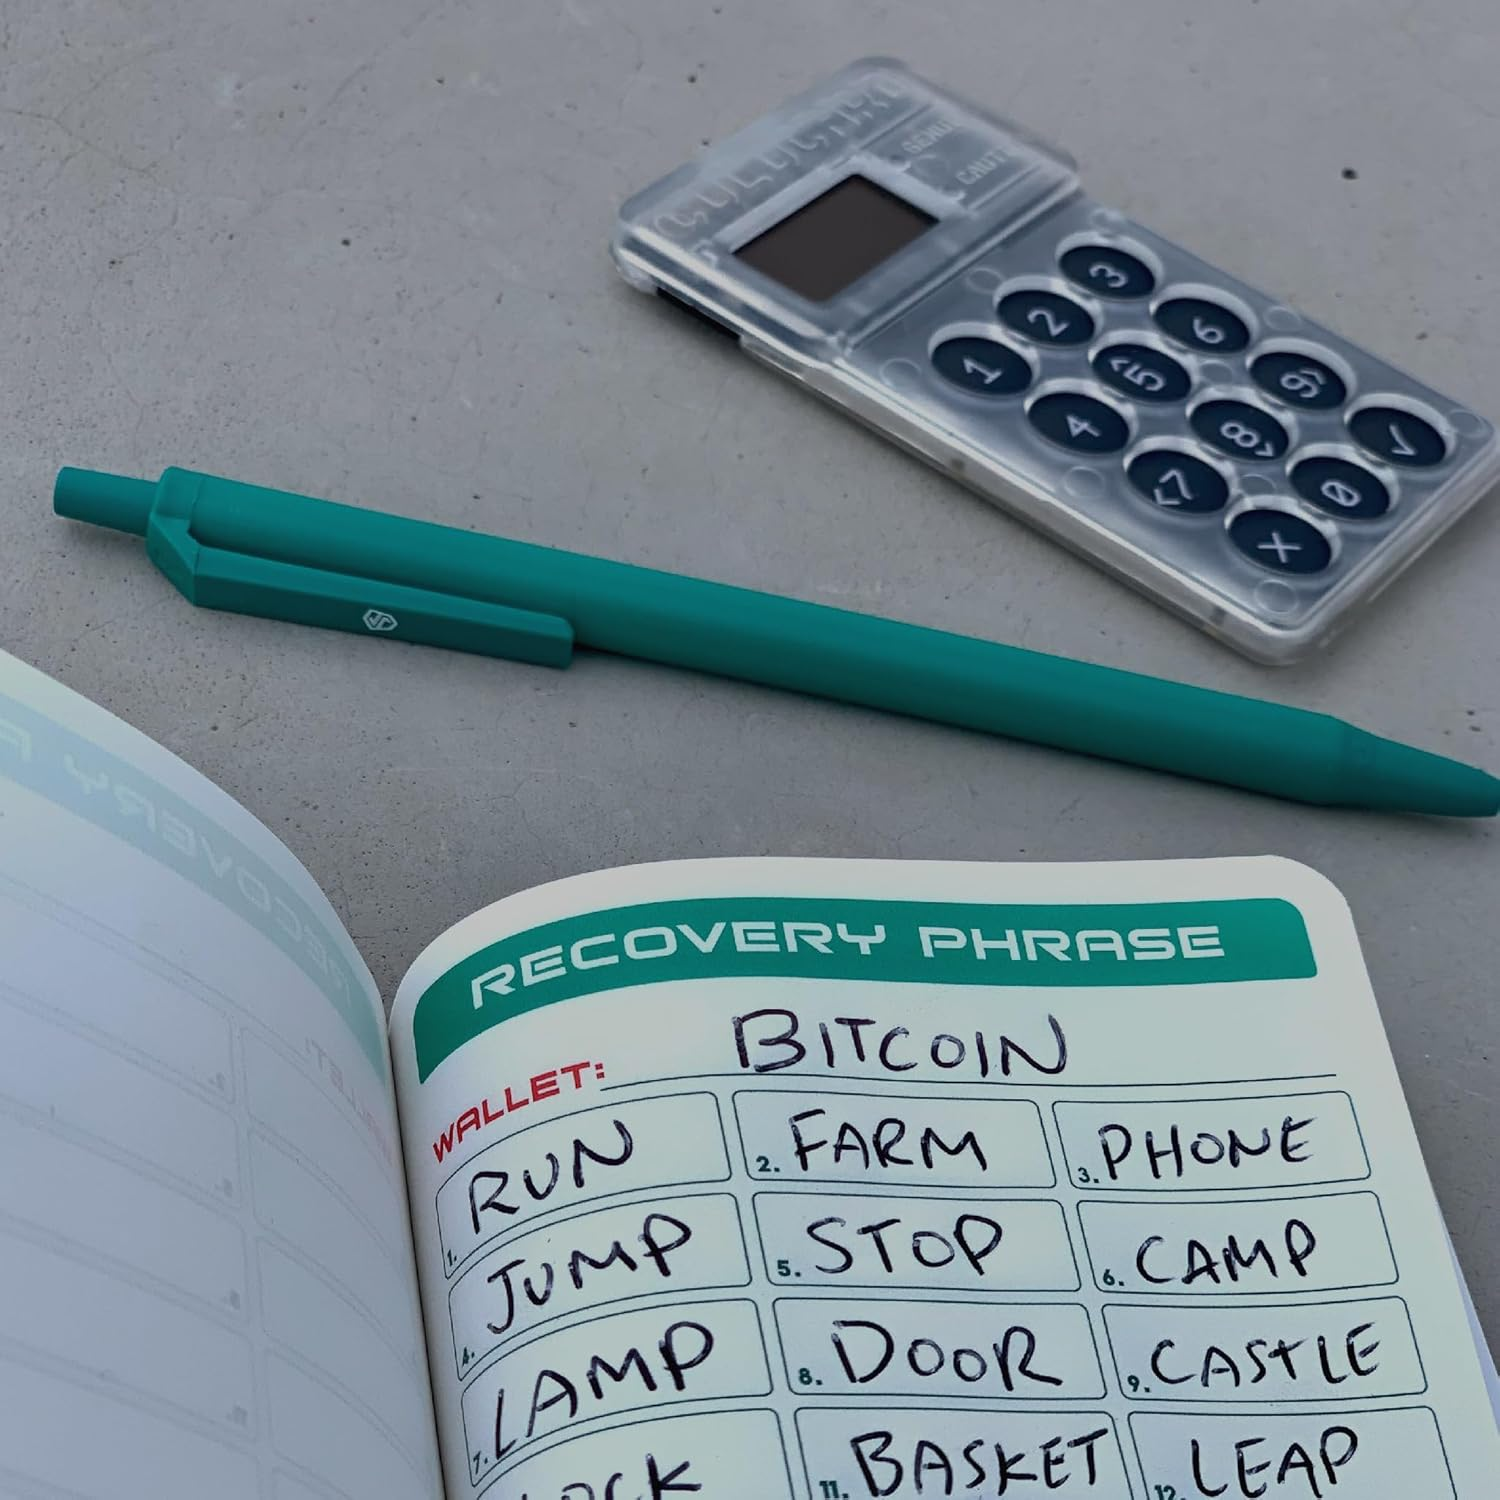 3
2 6
1 <5 9>
4 8> ✓
<7 0
X
RECOVERY PHRASE
WALLET: BITCOIN
1. RUN 2. FARM 3. PHONE
4. JUMP 5. STOP 6. CAMP
7. LAMP 8. DOOR 9. CASTLE
11. BASKET 12. LEAP